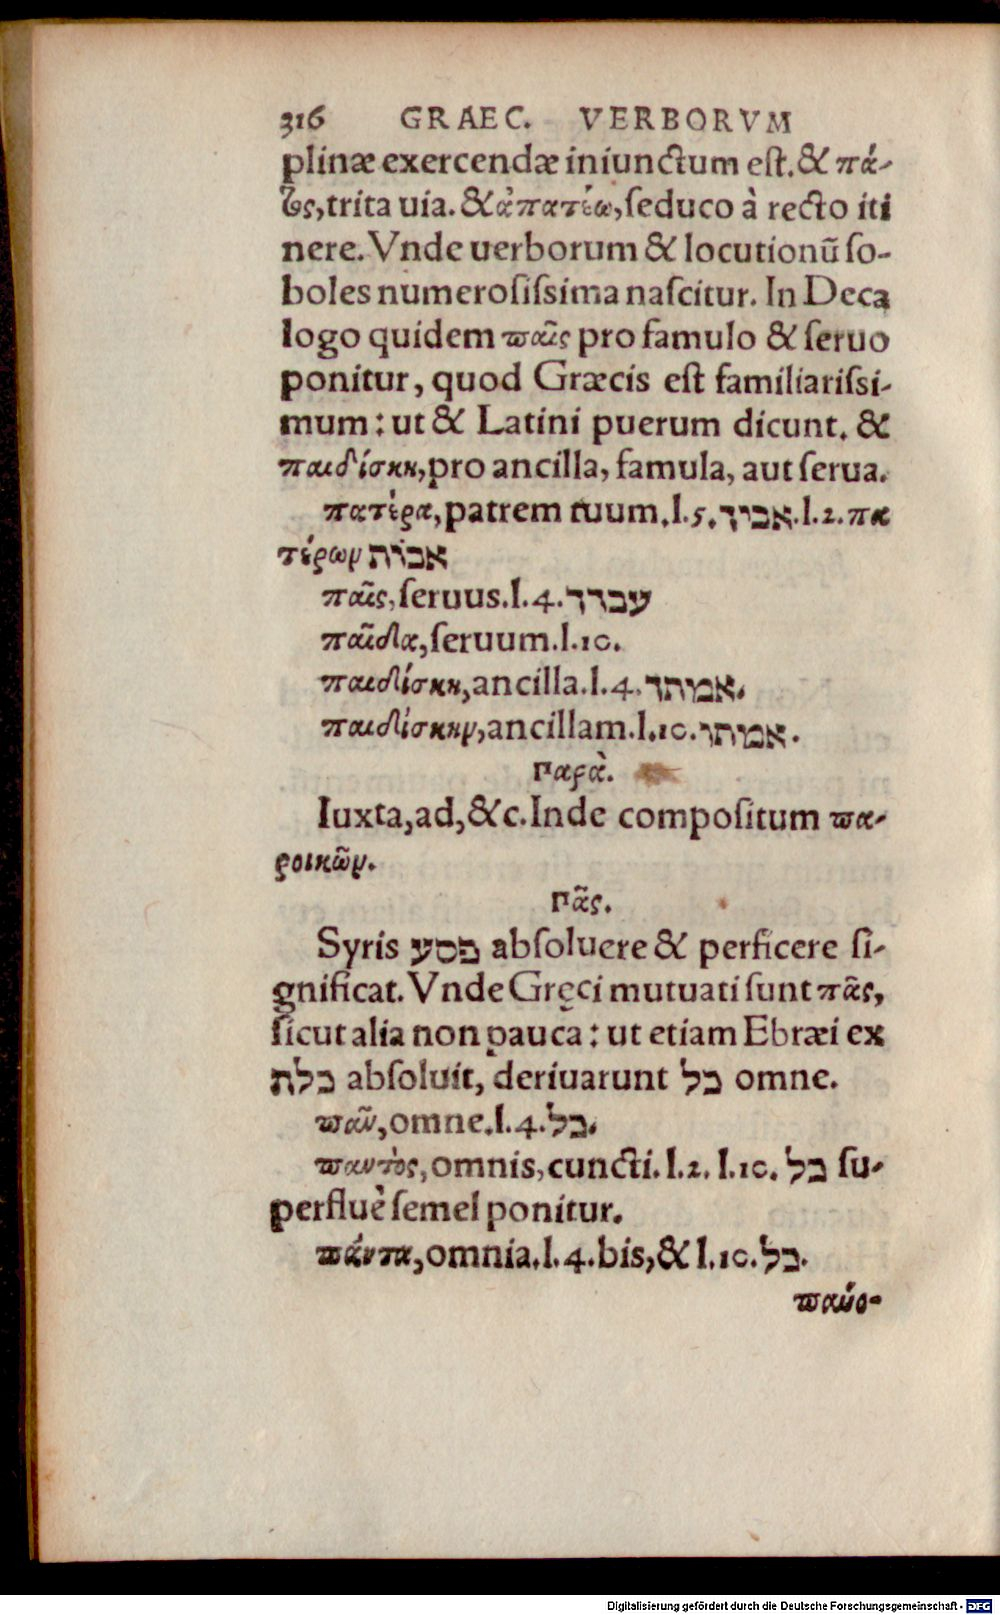 316 GRAEC. VERBORVM
plinæ exercendæ iniunctum eſt. & πά-
τος, trita uia. & ἀπατέω, ſeduco à recto iti
nere. Vnde uerborum & locutionũ ſo-
boles numeroſiſsima naſcitur. In Deca
logo quidem παῖς pro famulo & ſeruo
ponitur, quod Græcis eſt familiariſsi-
mum: ut & Latini puerum dicunt. &
παιδίσκη, pro ancilla, famula, aut ſerua.
πατέρα, patrem tuum. l. 5. אביך. l. 2. πα
τέρων אבות
παῖς, ſeruus. l. 4. עבדך
παῖδα, ſeruum. l. 10.
παιδίσκη, ancilla. l. 4. אמתך.
παιδίσκην, ancillam. l. 10. אמתו.
Παρὰ.
Iuxta, ad, &c. Inde compoſitum πα-
ροικῶν.
Πᾶς.
Syris פסע abſoluere & perficere ſi-
gnificat. Vnde Gręci mutuati ſunt πᾶς,
ſicut alia non pauca: ut etiam Ebræi ex
כלת abſoluit, deriuarunt כל omne.
πᾶν, omne. l. 4. כל.
παντὸς, omnis, cuncti. l. 2. l. 10. כל ſu-
perfluè ſemel ponitur.
πάντα, omnia. l. 4. bis, & l. 10. כל.
παύσ-
Digitalisierung gefördert durch die Deutsche Forschungsgemeinschaft - DFG